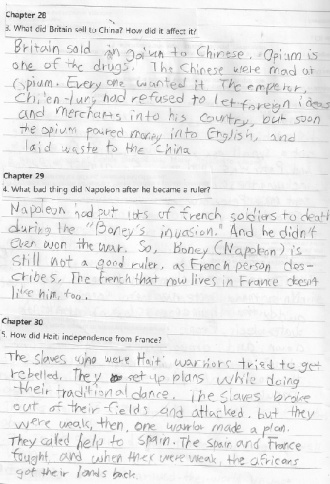 Chapter 28
3. What did Britain sell to China? How did it affect it?
Britain sold in to Chinese. Opium is
one of the drugs. The Chinese were mad at
Opium. Every one wanted it The emperor,
Chi'en-lung had refused to let foreign ideas
and merchants into his country, but soon
the opium poured money into English, and
laid waste to the China
Chapter 29
4. What bad thing did Napoleon after he became a ruler?
Napoleon had put lots of french soldiers to death
during the "Boney's invasion." And he didn't
even won the war. So, Boney (Napoleon) is
still not a good ruler, as French person des-
cribes. The french that now lives in France doesnt
like him, too.
Chapter 30
5. How did Haiti independence from France?
The slaves who were Haiti warriors tried to get
rebelled. They set up plans while doing
their traditional dance. The slaves broke
out of their fields and attacked. but they
were weak, then, one made a plan.
They called help to spain. The spain and France
fought, and when they were weak, the africans
got their lands back.